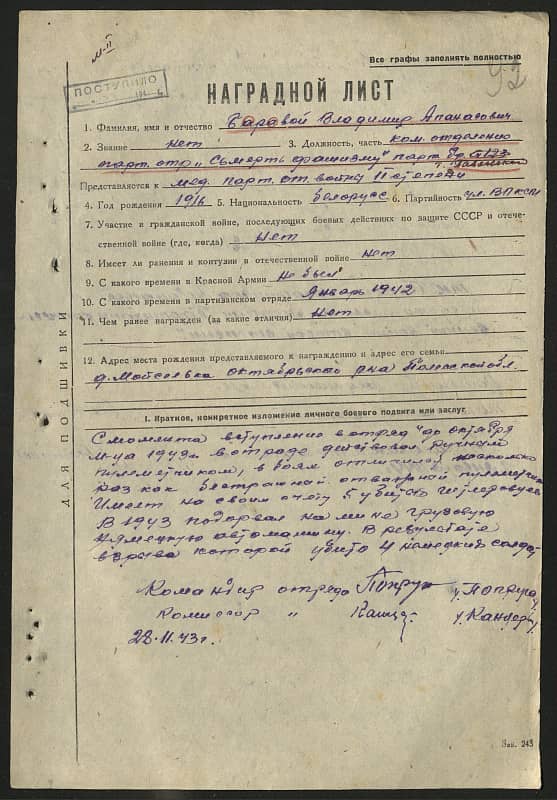 М-II
Все графы заполнять полностью
ПОСТУПИЛО
92
НАГРАДНОЙ ЛИСТ
1. Фамилия, имя и отчество Баравой Владимир Апанасович
2. Звание нет 3. Должность, часть ком. отделения
парт. отр. „Смерть фашизму" парт. бр. №123
Представляется к мед. парт. от. войны II степени
4. Год рождения 1916 5. Национальность белорусс 6. Партийность чл. ВЛКСМ
7. Участие в гражданской войне, последующих боевых действиях по защите СССР и отече-
ственной войне (где, когда) нет
8. Имеет ли ранения и контузии в отечественной войне нет
9. С какого времени в Красной Армии не был
10. С какого времени в партизанском отряде Январь 1942
11. Чем ранее награжден (за какие отличия) Нет
12. Адрес места рождения представляемого к награждению и адрес его семьи
д. Мойсеевка октябрьского р-на Полесской обл.
I. Краткое, конкретное изложение личного боевого подвига или заслуг
С момента вступления в отряд до октября
м-ца 1943г. в отряде действовал ручным
пулеметчиком, в боях отличился несколько
раз как бестрашной отважной пулеметчик
Имеет на своим счету 5 убитых гитлеровцев
В 1943 подорвал на мине грузовую
немецкую автомашину. В результате
взрыва которой убито 4 немецких солдат
Командир отряда /Попруга/
Комиссар " /Канцер/
28.11.43г.
ДЛЯ ПОДШИВКИ
Зак. 243